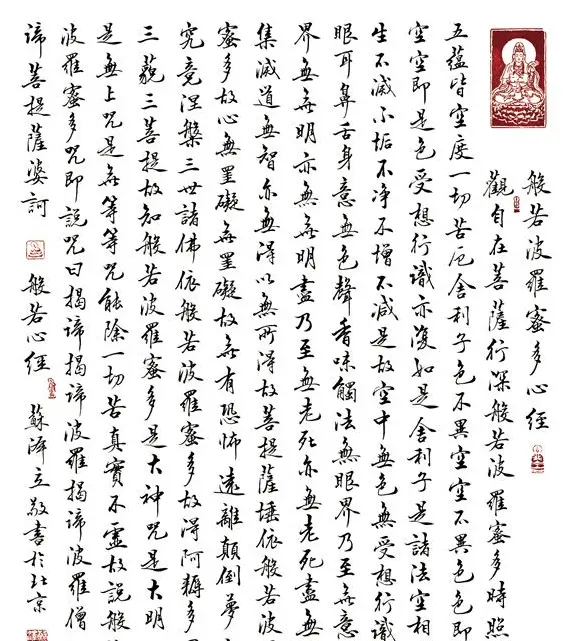 般若波羅蜜多心經
觀自在菩薩行深般若波羅蜜多時照
五蘊皆空度一切苦厄舍利子色不異空空不異色色即
空空即是色受想行識亦復如是舍利子是諸法空相
生不滅不垢不净不增不減是故空中無色無受想行識
眼耳鼻舌身意無色聲香味觸法無眼界乃至無意
界無無明亦無無明盡乃至無老死亦無老死盡無
集滅道無智亦無得以無所得故菩提薩埵依般若波
蜜多故心無罣礙無罣礙故無有恐怖遠離顛倒夢
究竟涅槃三世諸佛依般若波羅蜜多故得阿耨多
三藐三菩提故知般若波羅蜜多是大神咒是大明
是無上咒是無等等咒能除一切苦真實不虛故說般
波羅蜜多咒即說咒曰揭諦揭諦波羅揭諦波羅僧
諦菩提薩婆訶 般若心經 蘇澤立敬書於北京